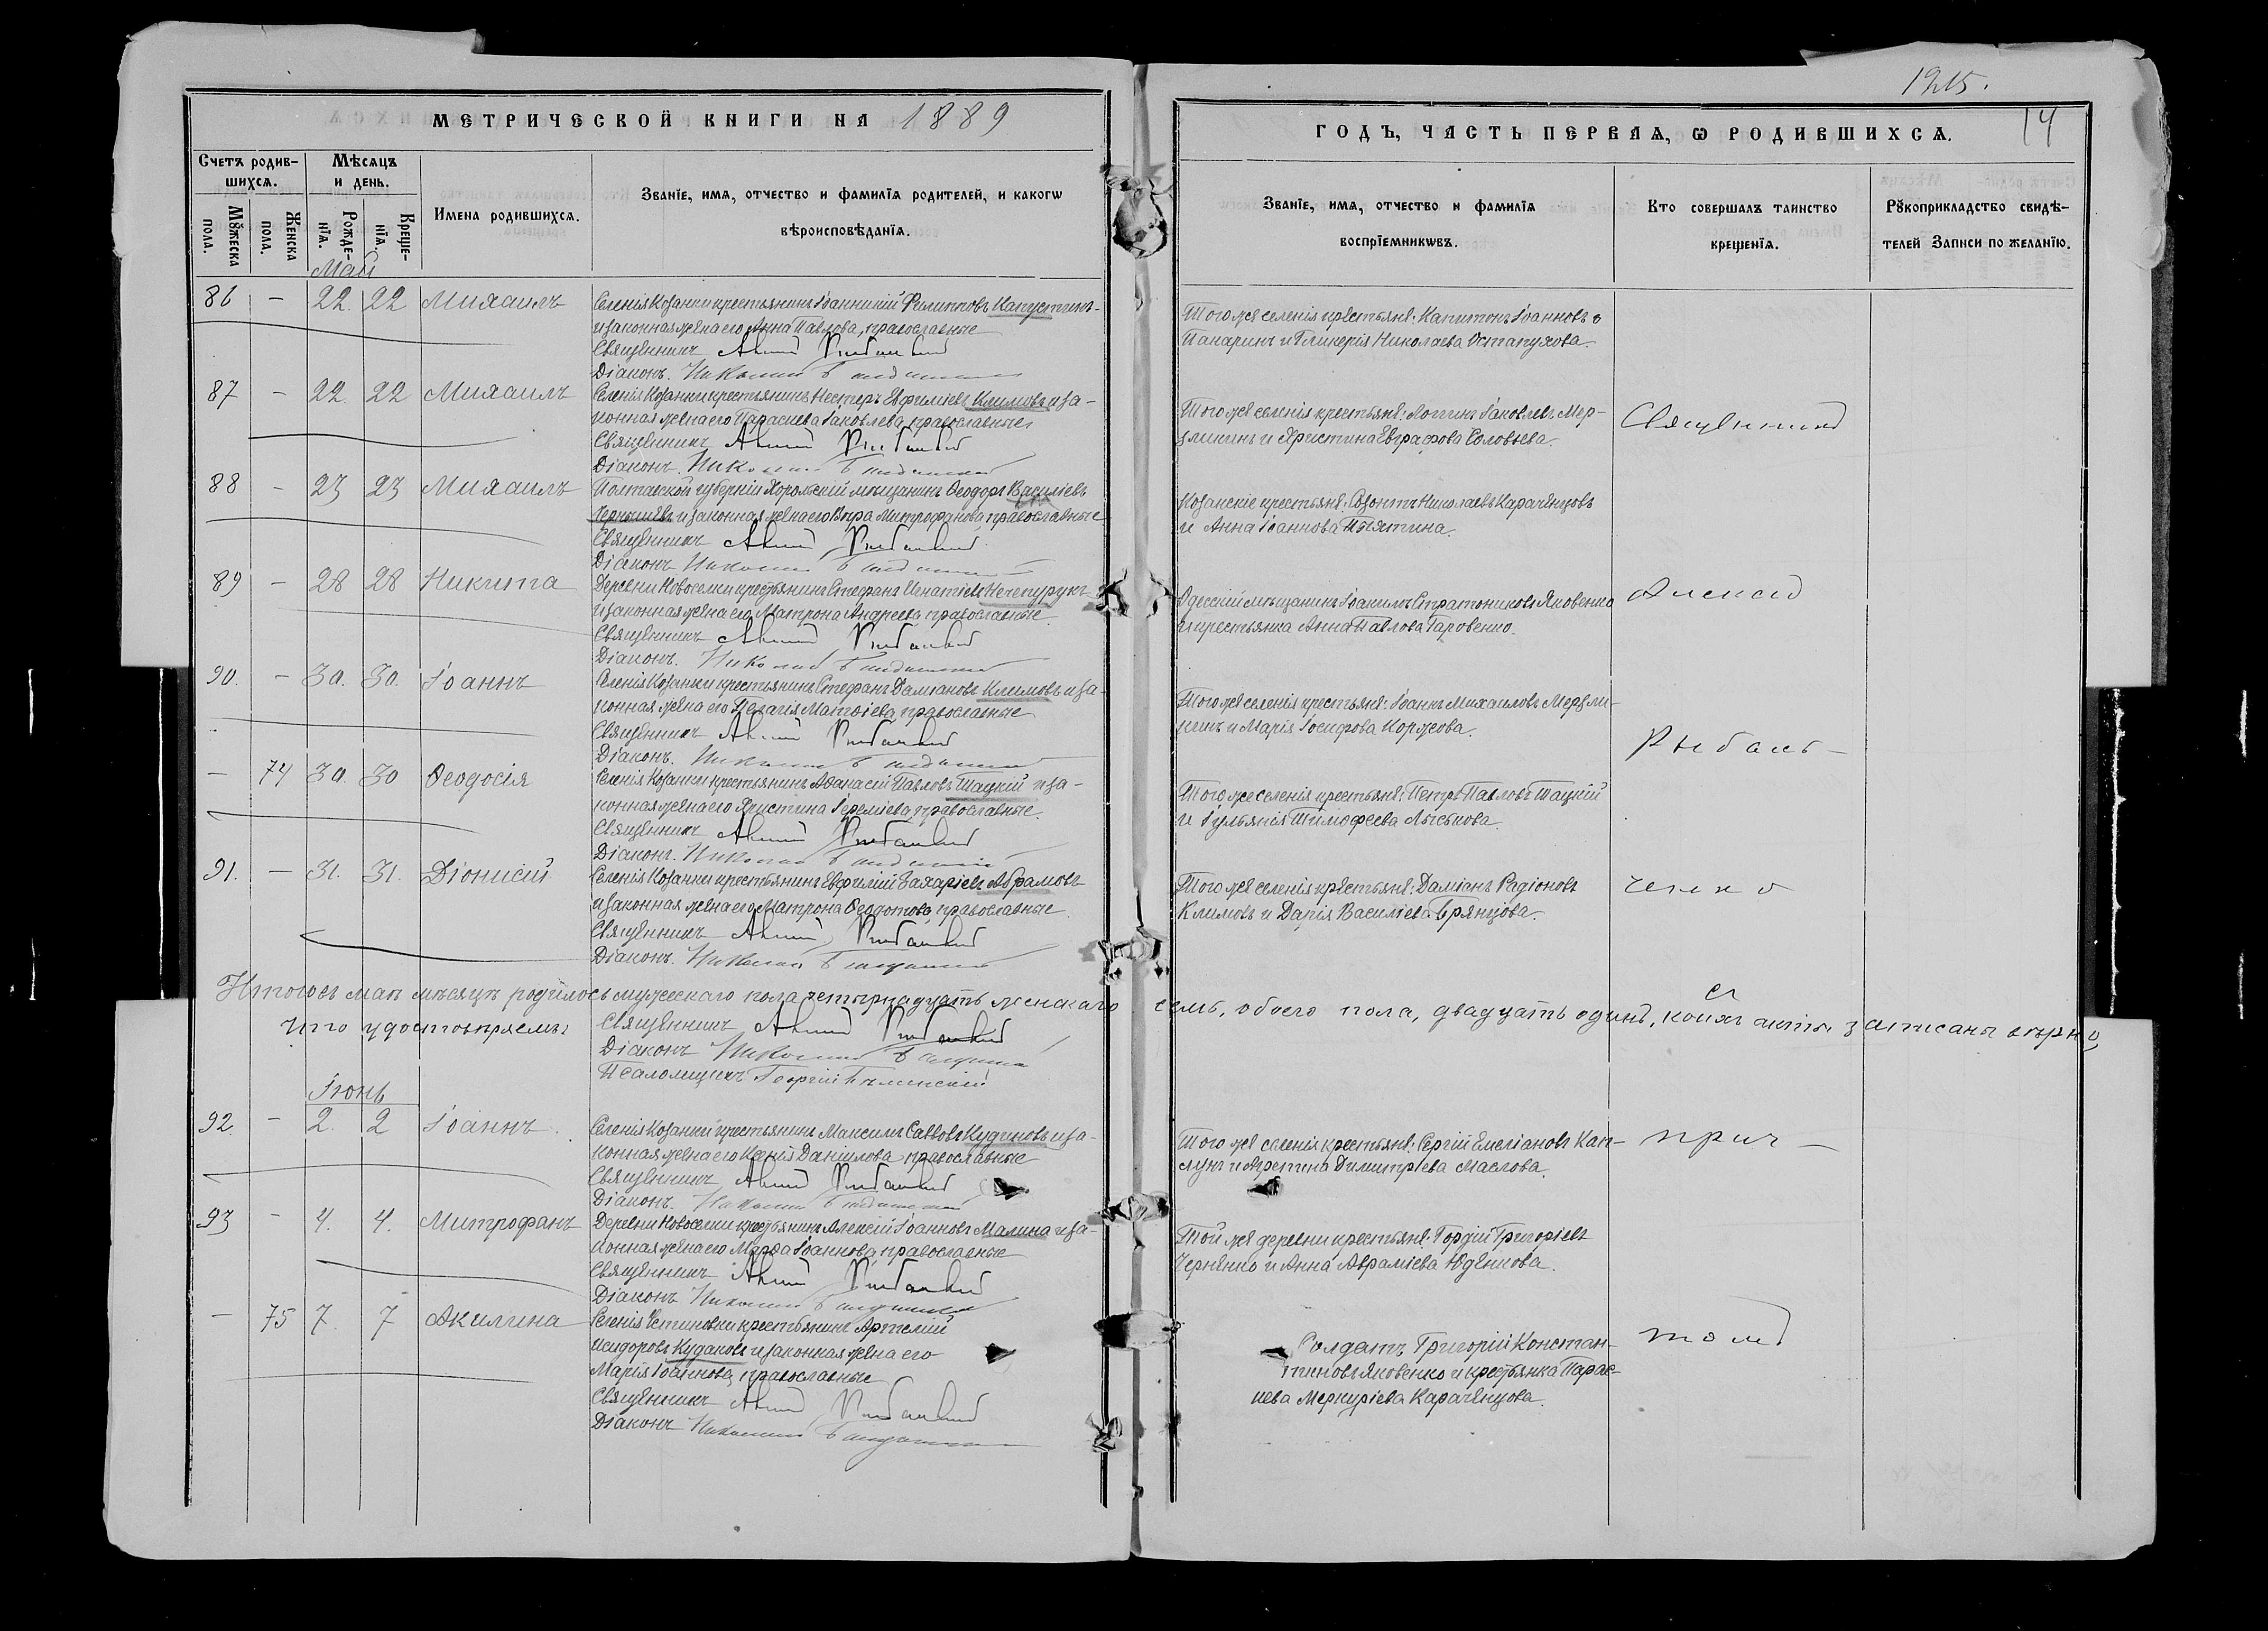 1215.
14
МЕТРИЧЕСКОЙ КНИГИ НА 1889
ГОДЪ, ЧАСТЬ ПЕРВАѦ, Ѡ РОДИВШИХСѦ.
Счетъ родив-
шихсѧ.
Мѣсѧцъ
и день.
Мꙋжеска
пола.
Женска
пола.
Рожде-
нїѧ.
Креще-
нїѧ.
Имена родившихсѧ.
Званїе, имѧ, отчество и фамилїѧ родителей, и какогѡ
вѣроисповѣданїѧ.
Званїе, имѧ, отчество и фамилїѧ
воспрїемникѡвъ.
Кто совершалъ таинство
крещенїѧ.
Рꙋкоприкладство свидѣ-
телей Записи по желанїю.
Май
86 - 22. 22 Михаилъ Селенія Козанки крестьянинъ Іоанникій Филипповъ Капустинъ-
и законная жена его Анна Павлова, православные
Священникъ
Діаконъ. Николай
Того же селенія крестьяне: Капитонъ Іоанновъ
Панаринъ и Гликерія Николаева Остапухова.
87 - 22. 22 Михаилъ Селенія Козанки крестьянинъ Нестеръ Евфиміевъ Климовъ и за-
конная жена его Параскева Іаковлева, православные
Священникъ
Діаконъ. Николай
Того же селенія крестьяне: Логгинъ Іаковлевъ Мер-
зликинъ и Христина Евграфова Соловьева.
Священникъ
88 - 23 23 Михаилъ Полтавской губерніи Хорольскій мѣщанинъ Ѳеодоръ Василіевъ
Чернышевъ и законная жена его Вѣра Митрофанова, православные
Священникъ
Діаконъ Николай
Козанскіе крестьяне: Созонтъ Николаевъ Карачевцовъ
и Анна Іоаннова Пѣятина.
89 - 28 28 Никита Деревни Новоселки крестьянинъ Стефанъ Игнатіевъ Нечепурукъ
и законная жена его Матрона Андреева, православные.
Священникъ
Діаконъ. Николай
Одесскій мѣщанинъ Іоакимъ Стратониковъ Яковенко
и крестьянка Анна Павлова Таровенко.
Алексій
90. - 30. 30. Іоаннъ Селенія Козанки крестьянинъ Стефанъ Даміановъ Климовъ и за-
конная жена его Пелагія Матѳіева, православные.
Священникъ
Діаконъ. Николай
Того же селенія крестьяне: Іоаннъ Михаиловъ Мерзли-
кинъ и Марія Іосифова Коржова.
Рыбаль-
- 74 30. 30 Ѳеодосія Селенія Козанки крестьянинъ Аѳанасій Павловъ Шацкій и за-
конная жена его Христина Іереміева, православные.
Священникъ
Діаконъ. Николай
Того же селенія крестьяне: Петръ Павловъ Шацкій
и Іуліанія Тимофеева Лысыкова.
91. - 31. 31. Діонисій Селенія Козанки крестьянинъ Евфимій Захаріевъ Абрамовъ
и законная жена его Матрона Ѳеодотова, православные.
Священникъ
Діаконъ. Николай
Того же селенія крестьяне: Даміанъ Радіоновъ
Климовъ и Дарія Василіева Брянцова.
ченко
Итого въ маѣ мѣсяцѣ родилось мужескаго пола четырнадцать женскаго семь, обоего пола, двадцать одинъ, коихъ акты записаны вѣрно,
что удостовѣряемъ: Священникъ
Діаконъ Николай
Псаломщикъ Георгій
Іюнь
92. - 2. 2 Іоаннъ. Селенія Козанки крестьянинъ Максимъ Савовъ Кудиновъ и за-
конная жена его Ксенія Даніилова православные
Священникъ
Діаконъ. Николай
Того же селенія крестьяне: Сергій Емеліановъ Кап-
лунъ и Агрепина Димитріева Маслова.
прич-
93 - 4. 4. Митрофанъ Деревни Новоселки крестьянинъ Алексій Іоанновъ Малина и за-
конная жена его Марѳа Іоаннова, православные
Священникъ
Діаконъ Николай
Той же деревни крестьяне: Гордій Григоріевъ
Черненко и Анна Авраміева Юденкова.
- 75 7. 7 Акилина Селенія Устиновки крестьянинъ Артемій
Исидоровъ Кудаковъ и законная жена его
Марія Іоаннова, православные
Священникъ
Діаконъ Николай
Солдатъ Григорій Констан-
тиновъ Яковенко и крестьянка Парас-
кева Меркуріева Карачевцова.
томъ